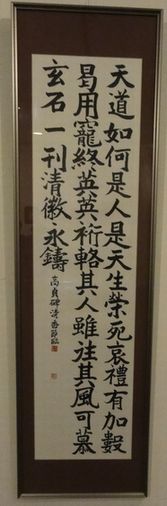 天道如何是人是天生榮死哀禮有加數
曷用寵終英英袗輅其人雖往其風可慕
玄石一刊清徽永鑄
高貞碑 清香節臨